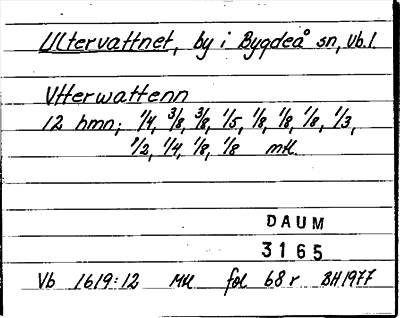 Ultervattnet, by i Bygdeå sn, Vb.l.
Vtterwattenn
12 hmn; 1/4, 3/8, 3/8, 1/5, 1/8, 1/8, 1/8, 1/3,
1/2, 1/4, 1/8, 1/8 mtl.
DAUM
3165
Vb 1619:12 Mtl fol 68r BH1977